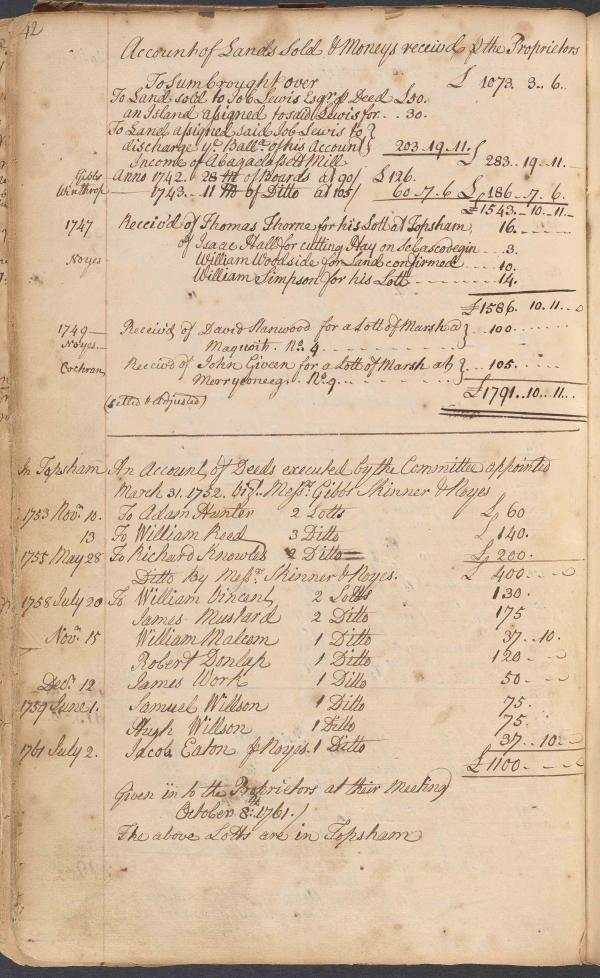 42
Account of Lands Sold & Moneys receiv'd p the Proprietors
To Sum brought over £ 1073. 3.. 6..
To Land sold to Job Lewis Esqr. p Deed £50.
an Island assigned to said Lewis for... 30.
To Land assigned said Job Lewis to }
discharge ye. Ballce. of his Account } 203..19..11.
Income of Abagadassett Mill £ 283..19..11.
Gibbs Anno 1742. 28 m of Boards at 90/ £126.
Winthrop 1743. 11 m of Ditto at 105/ 60..7..6 £186..7..6.
£1543..10..11..
1747 Receiv'd of Thomas Thorne for his Lott at Topsham, 16.
of Isaac Hall for cutting Hay on Sebascodegin 3.
Noyes William Woodside for Land confirmed 10.
William Simpson for his Lott 14.
£1586. 10..11..0
1749 Receiv'd of David Stanwood for a Lott of Marsh @ } 100
Noyes Maquoit. No. 4
Cochran Receiv'd of John Given for a Lott of Marsh at } 105.
Merryconeeg. No. 9
£1791..10..11..
(settled & adjusted)
In Topsham An Account of Deeds executed by the Committee appointed
March 31. 1752. viz. Messrs. Gibbs Skinner & Noyes
1753 Novr. 10. To Adam Hunter 2 Lotts £ 60
13 To William Reed 3 Ditto £ 140.
1755 May 28 To Richard Knowles 2 Ditto £ 200.
Ditto By Messrs. Skinner & Noyes. £ 400
1758 July 20 To William Vincent 2 Lotts 130.
James Mustard 2 Ditto 175
Novr. 15 William Malcom 1 Ditto 37..10.
Robert Dunlap 1 Ditto 120
Decr. 12 James Work 1 Ditto 50
1759 June 1. Samuel Willson 1 Ditto 75.
Hugh Willson 1 Ditto 75.
1761 July 2. Jacob Eaton p Noyes. 1 Ditto 37..10
£1100
Given in to the Proprietors at their Meeting
October 8th: 1761./
The above Lotts are in Topsham